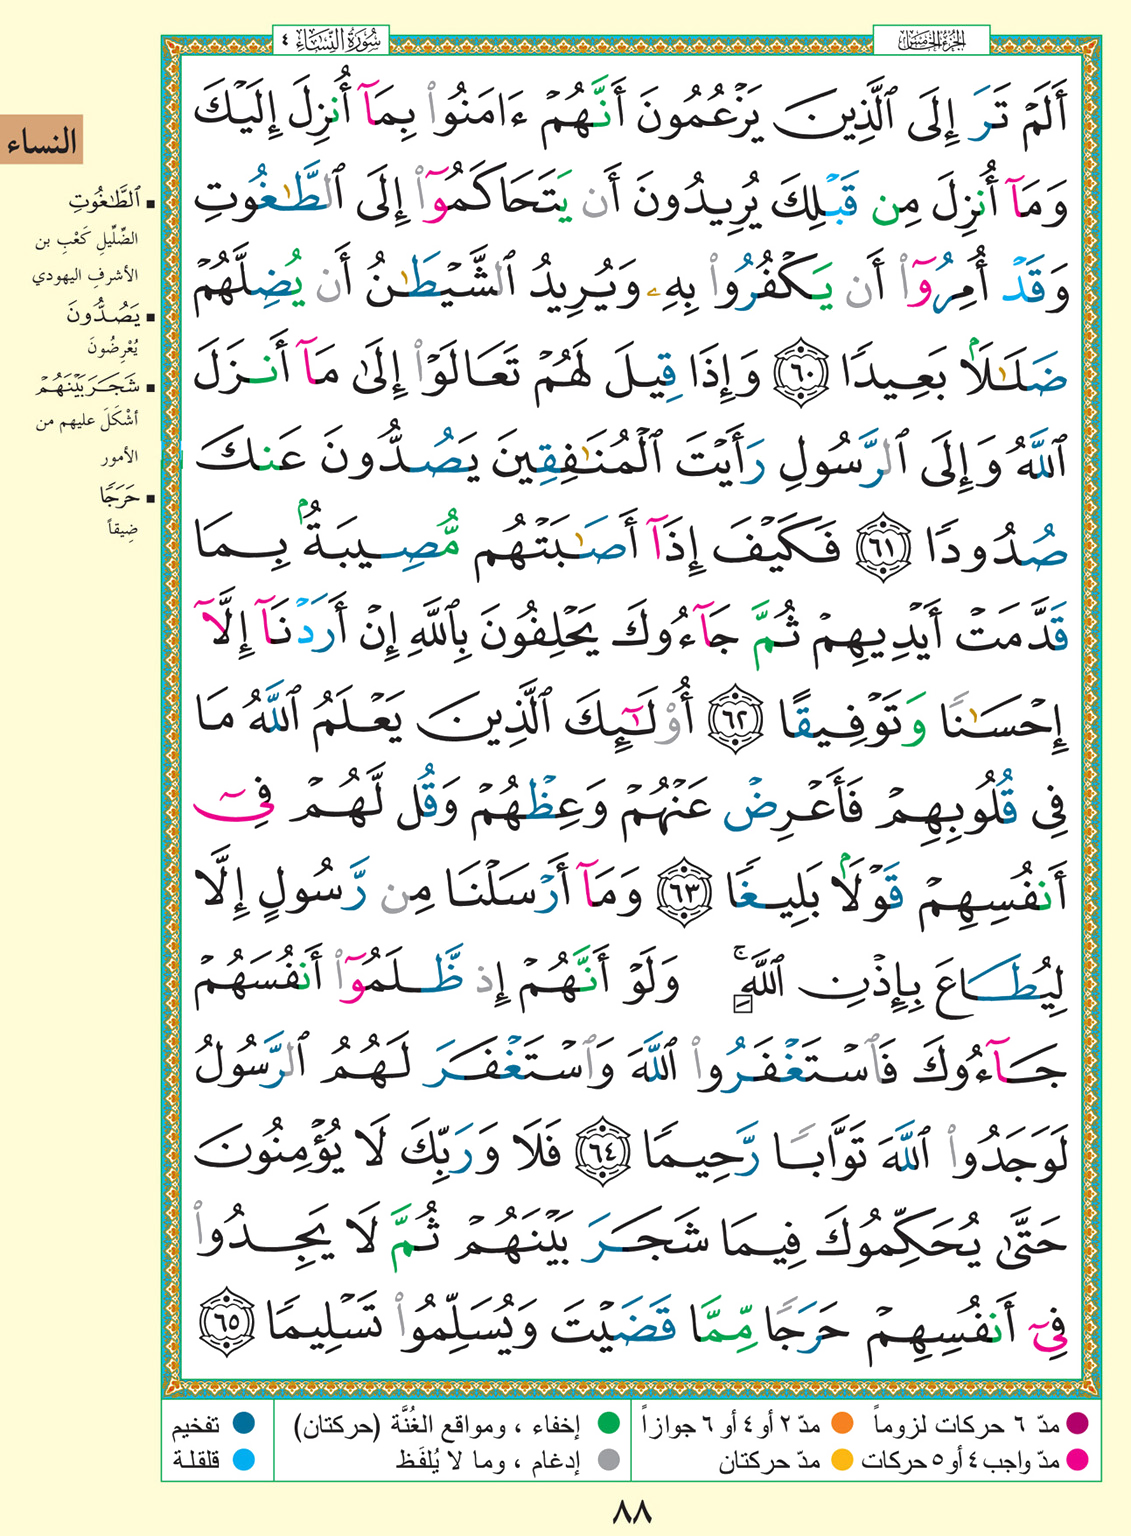 الجزء الخامس
سُورَةُ النِّسَاءِ ٤
أَلَمْ تَرَ إِلَى ٱلَّذِينَ يَزْعُمُونَ أَنَّهُمْ ءَامَنُوا۟ بِمَآ أُنزِلَ إِلَيْكَ
وَمَآ أُنزِلَ مِن قَبْلِكَ يُرِيدُونَ أَن يَتَحَاكَمُوٓا۟ إِلَى ٱلطَّٰغُوتِ
وَقَدْ أُمِرُوٓا۟ أَن يَكْفُرُوا۟ بِهِۦ وَيُرِيدُ ٱلشَّيْطَٰنُ أَن يُضِلَّهُمْ
ضَلَٰلًۢا بَعِيدًا ٦٠ وَإِذَا قِيلَ لَهُمْ تَعَالَوْا۟ إِلَىٰ مَآ أَنزَلَ
ٱللَّهُ وَإِلَى ٱلرَّسُولِ رَأَيْتَ ٱلْمُنَٰفِقِينَ يَصُدُّونَ عَنكَ
صُدُودًا ٦١ فَكَيْفَ إِذَآ أَصَٰبَتْهُم مُّصِيبَةٌۢ بِمَا
قَدَّمَتْ أَيْدِيهِمْ ثُمَّ جَآءُوكَ يَحْلِفُونَ بِٱللَّهِ إِنْ أَرَدْنَآ إِلَّآ
إِحْسَٰنًا وَتَوْفِيقًا ٦٢ أُو۟لَٰٓئِكَ ٱلَّذِينَ يَعْلَمُ ٱللَّهُ مَا
فِى قُلُوبِهِمْ فَأَعْرِضْ عَنْهُمْ وَعِظْهُمْ وَقُل لَّهُمْ فِىٓ
أَنفُسِهِمْ قَوْلًۢا بَلِيغًا ٦٣ وَمَآ أَرْسَلْنَا مِن رَّسُولٍ إِلَّا
لِيُطَاعَ بِإِذْنِ ٱللَّهِ ۚ وَلَوْ أَنَّهُمْ إِذ ظَّلَمُوٓا۟ أَنفُسَهُمْ
جَآءُوكَ فَٱسْتَغْفَرُوا۟ ٱللَّهَ وَٱسْتَغْفَرَ لَهُمُ ٱلرَّسُولُ
لَوَجَدُوا۟ ٱللَّهَ تَوَّابًا رَّحِيمًا ٦٤ فَلَا وَرَبِّكَ لَا يُؤْمِنُونَ
حَتَّىٰ يُحَكِّمُوكَ فِيمَا شَجَرَ بَيْنَهُمْ ثُمَّ لَا يَجِدُوا۟
فِىٓ أَنفُسِهِمْ حَرَجًا مِّمَّا قَضَيْتَ وَيُسَلِّمُوا۟ تَسْلِيمًا ٦٥
النساء
■ ٱلطَّٰغُوتِ
الضِّلِّيلِ كَعْبِ بن
الأشرفِ اليهودي
■ يَصُدُّونَ
يُعْرِضُونَ
■ شَجَرَ بَيْنَهُمْ
أشْكَلَ عليهم من
الأمور
■ حَرَجًا
ضِيقاً
مدّ ٦ حركات لزوماً مدّ ٢ أو ٤ أو ٦ جوازاً إخفاء ، ومواقع الغُنَّة (حركتان) تفخيم
مدّ واجب ٤ أو ٥ حركات مدّ حركتان إدغام ، وما لا يُلفَظ قلقلة
٨٨